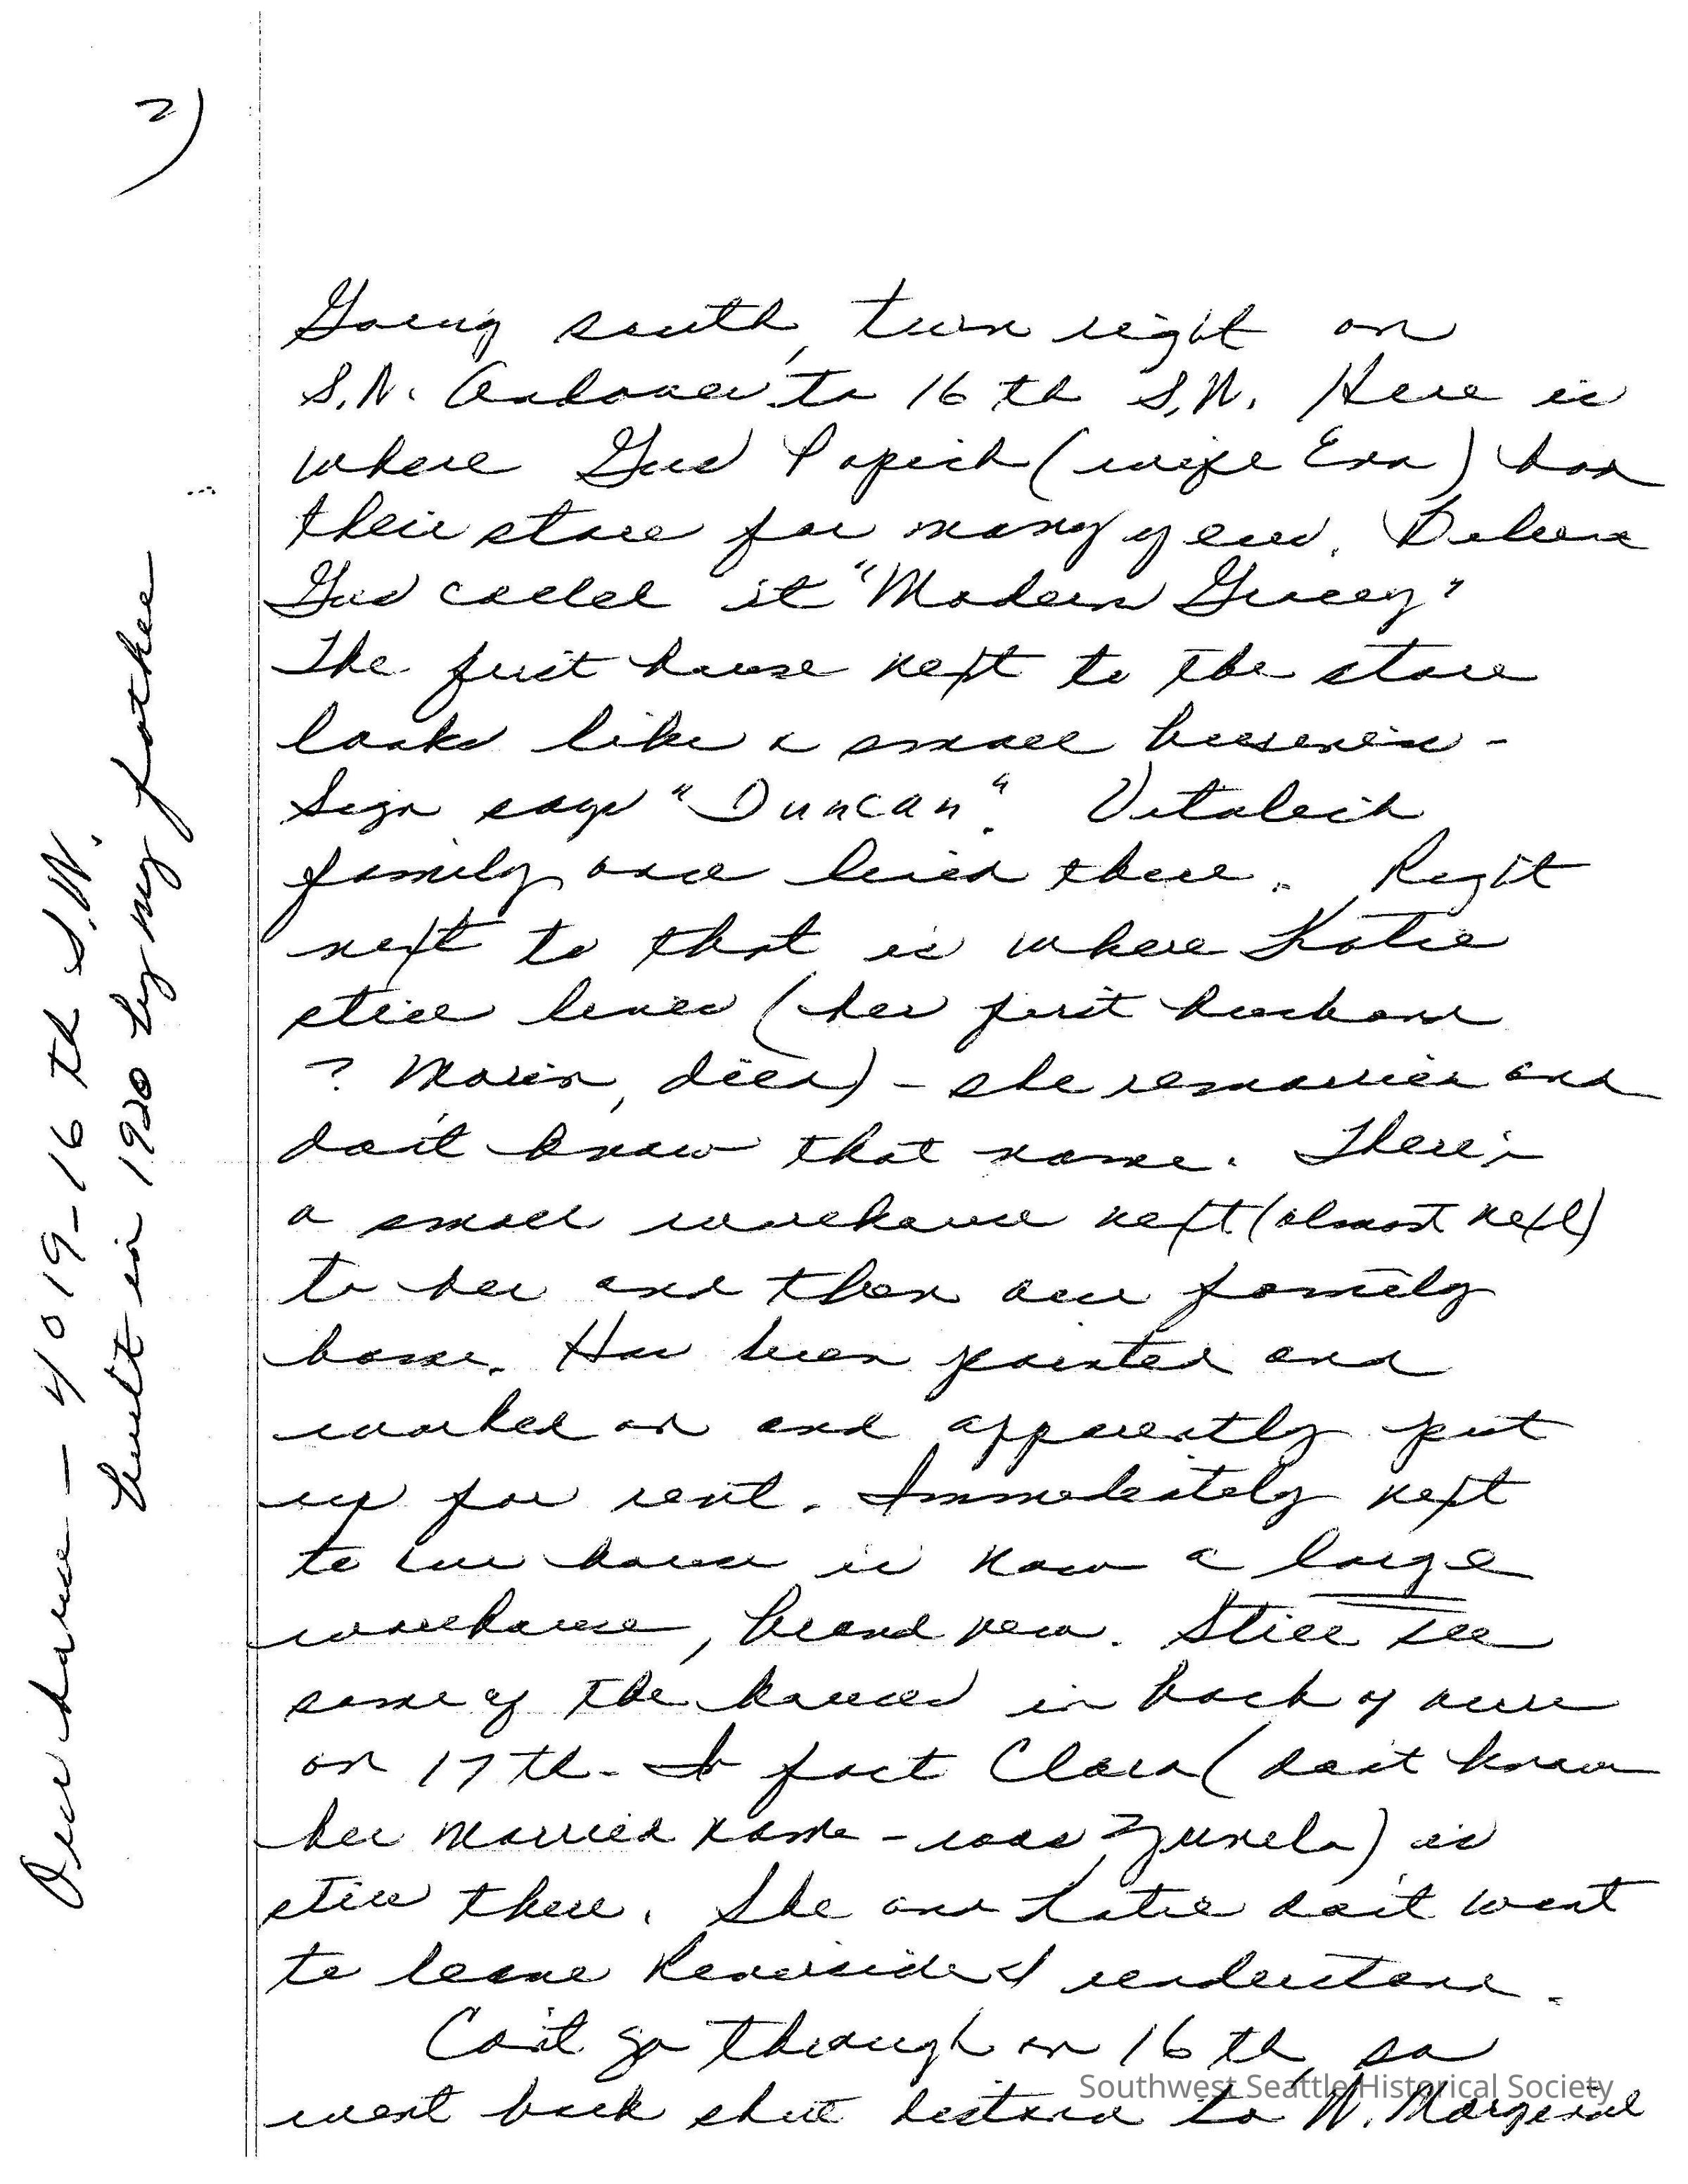 2)
Going south, turn right on
S.W. Andover to 16 th S.W. Here is
where Gus Popich (wife Eva) had
their store for many years. Believe
Gus called it "Modern Grocery"
The first house next to the store
looks like a small business -
Sign says "Duncan". Vitalich
family once lived there. Right
next to that is where Katie
still lives (her first husband
? Marin, died) - she remarried and
don't know that name. There's
a small warehouse next (almost next)
to her and then our family
home. Has been painted and
worked on and apparently put
up for rent. Immediately next
to our house is now a large
warehouse, brand new. Still see
some of the houses in back of ours
on 17 th - In fact Clara (don't know
her married name - was Zuvela) is
still there. She and Katie don't want
to leave Riverside I understand.
Can't go through on 16 th, so
went back short distance to W. Marginal
Our house - 4019-16 th S.W.
built in 1920 by my father
Southwest Seattle Historical Society